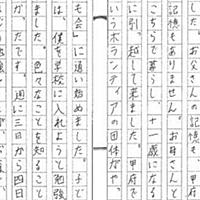 した。お父さんの記憶も、甲府
記憶もありません。お母さんと
こちらで暮らし、十一歳になる
に引っ越して来ました。甲府で
いうボランティアの団体がや
も会」に通い始めました。子ど
は、僕を学校に入れようと勉強
ました。色々なことを知ること
かったです。週に三日から四日